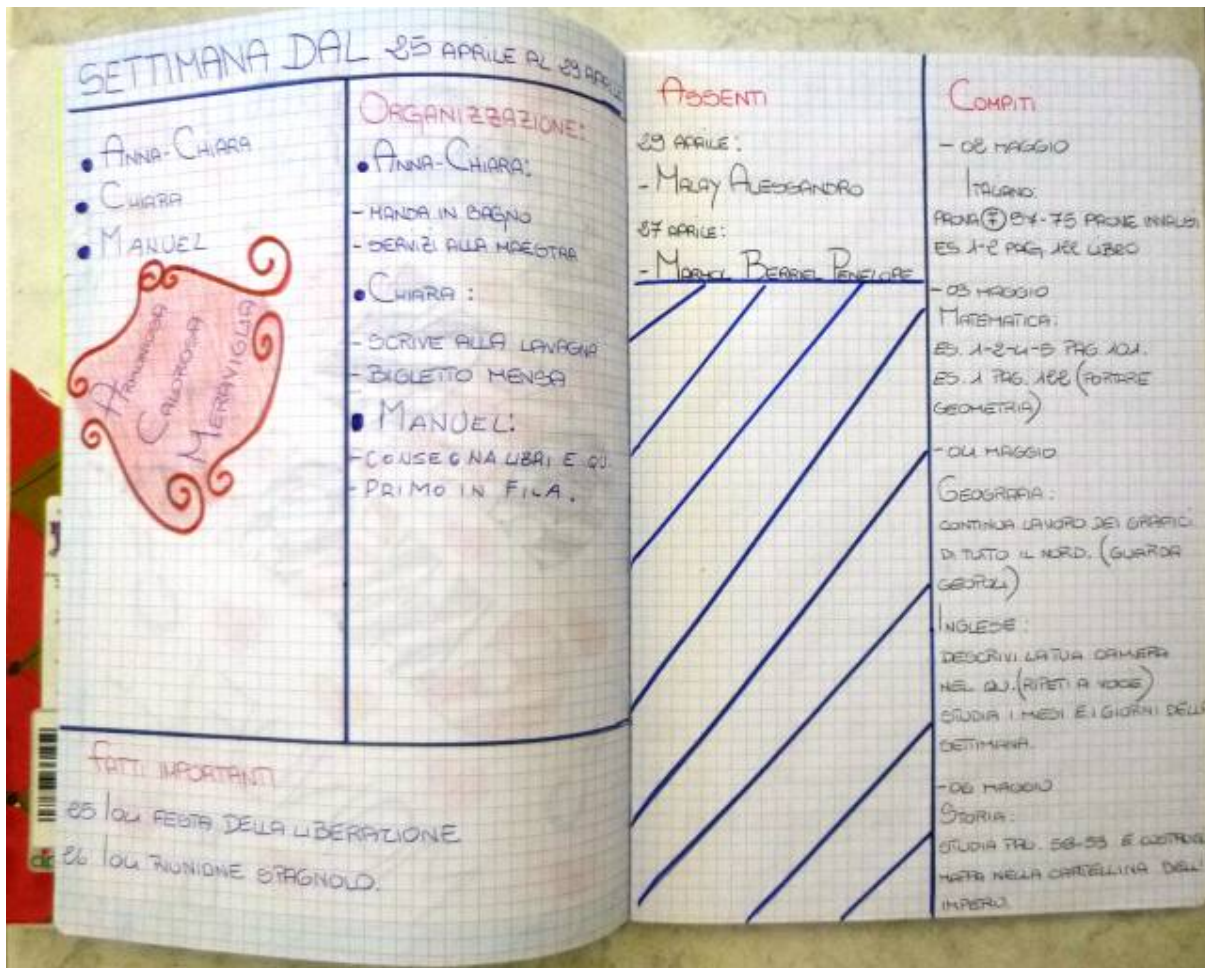 SETTIMANA DAL 25 APRILE AL 29 APRILE
• ANNA-CHIARA
• CHIARA
• MANUEL
ARMONIOSA
CALOROSA
MERAVIGLIA
ORGANIZZAZIONE:
• ANNA-CHIARA:
- MANDA IN BAGNO
- SERVIZI ALLA MAESTRA
• CHIARA:
- SCRIVE ALLA LAVAGNA
- BIGLIETTO MENSA
• MANUEL:
- CONSEGNA LIBRI E QU.
- PRIMO IN FILA.
FATTI IMPORTANTI
25/04 FESTA DELLA LIBERAZIONE
26/04 RIUNIONE SPAGNOLO.
ASSENTI
29 APRILE:
- MALAY ALESSANDRO
27 APRILE:
- BERRIEL PENELOPE
COMPITI
- 02 MAGGIO
ITALIANO:
PROVA 7 75 PROVE INVALSI
ES 1-2 PAG 122 LIBRO
- 03 MAGGIO
MATEMATICA:
ES. 1-2-4-5 PAG 101.
ES. 1 PAG. 122 (PORTARE
GEOMETRIA)
- 04 MAGGIO
GEOGRAFIA:
CONTINUA LAVORO DEI GRAFICI
DI TUTTO IL NORD. (GUARDA
GEOPOLI)
INGLESE:
DESCRIVI LA TUA CAMERA
NEL QU. (RIPETI A VOCE)
STUDIA I MESI E I GIORNI DELLA
SETTIMANA.
- 06 MAGGIO
STORIA:
STUDIA PAG. 58-59 E
MAPPA NELLA CARTELLINA DELL'
IMPERO.